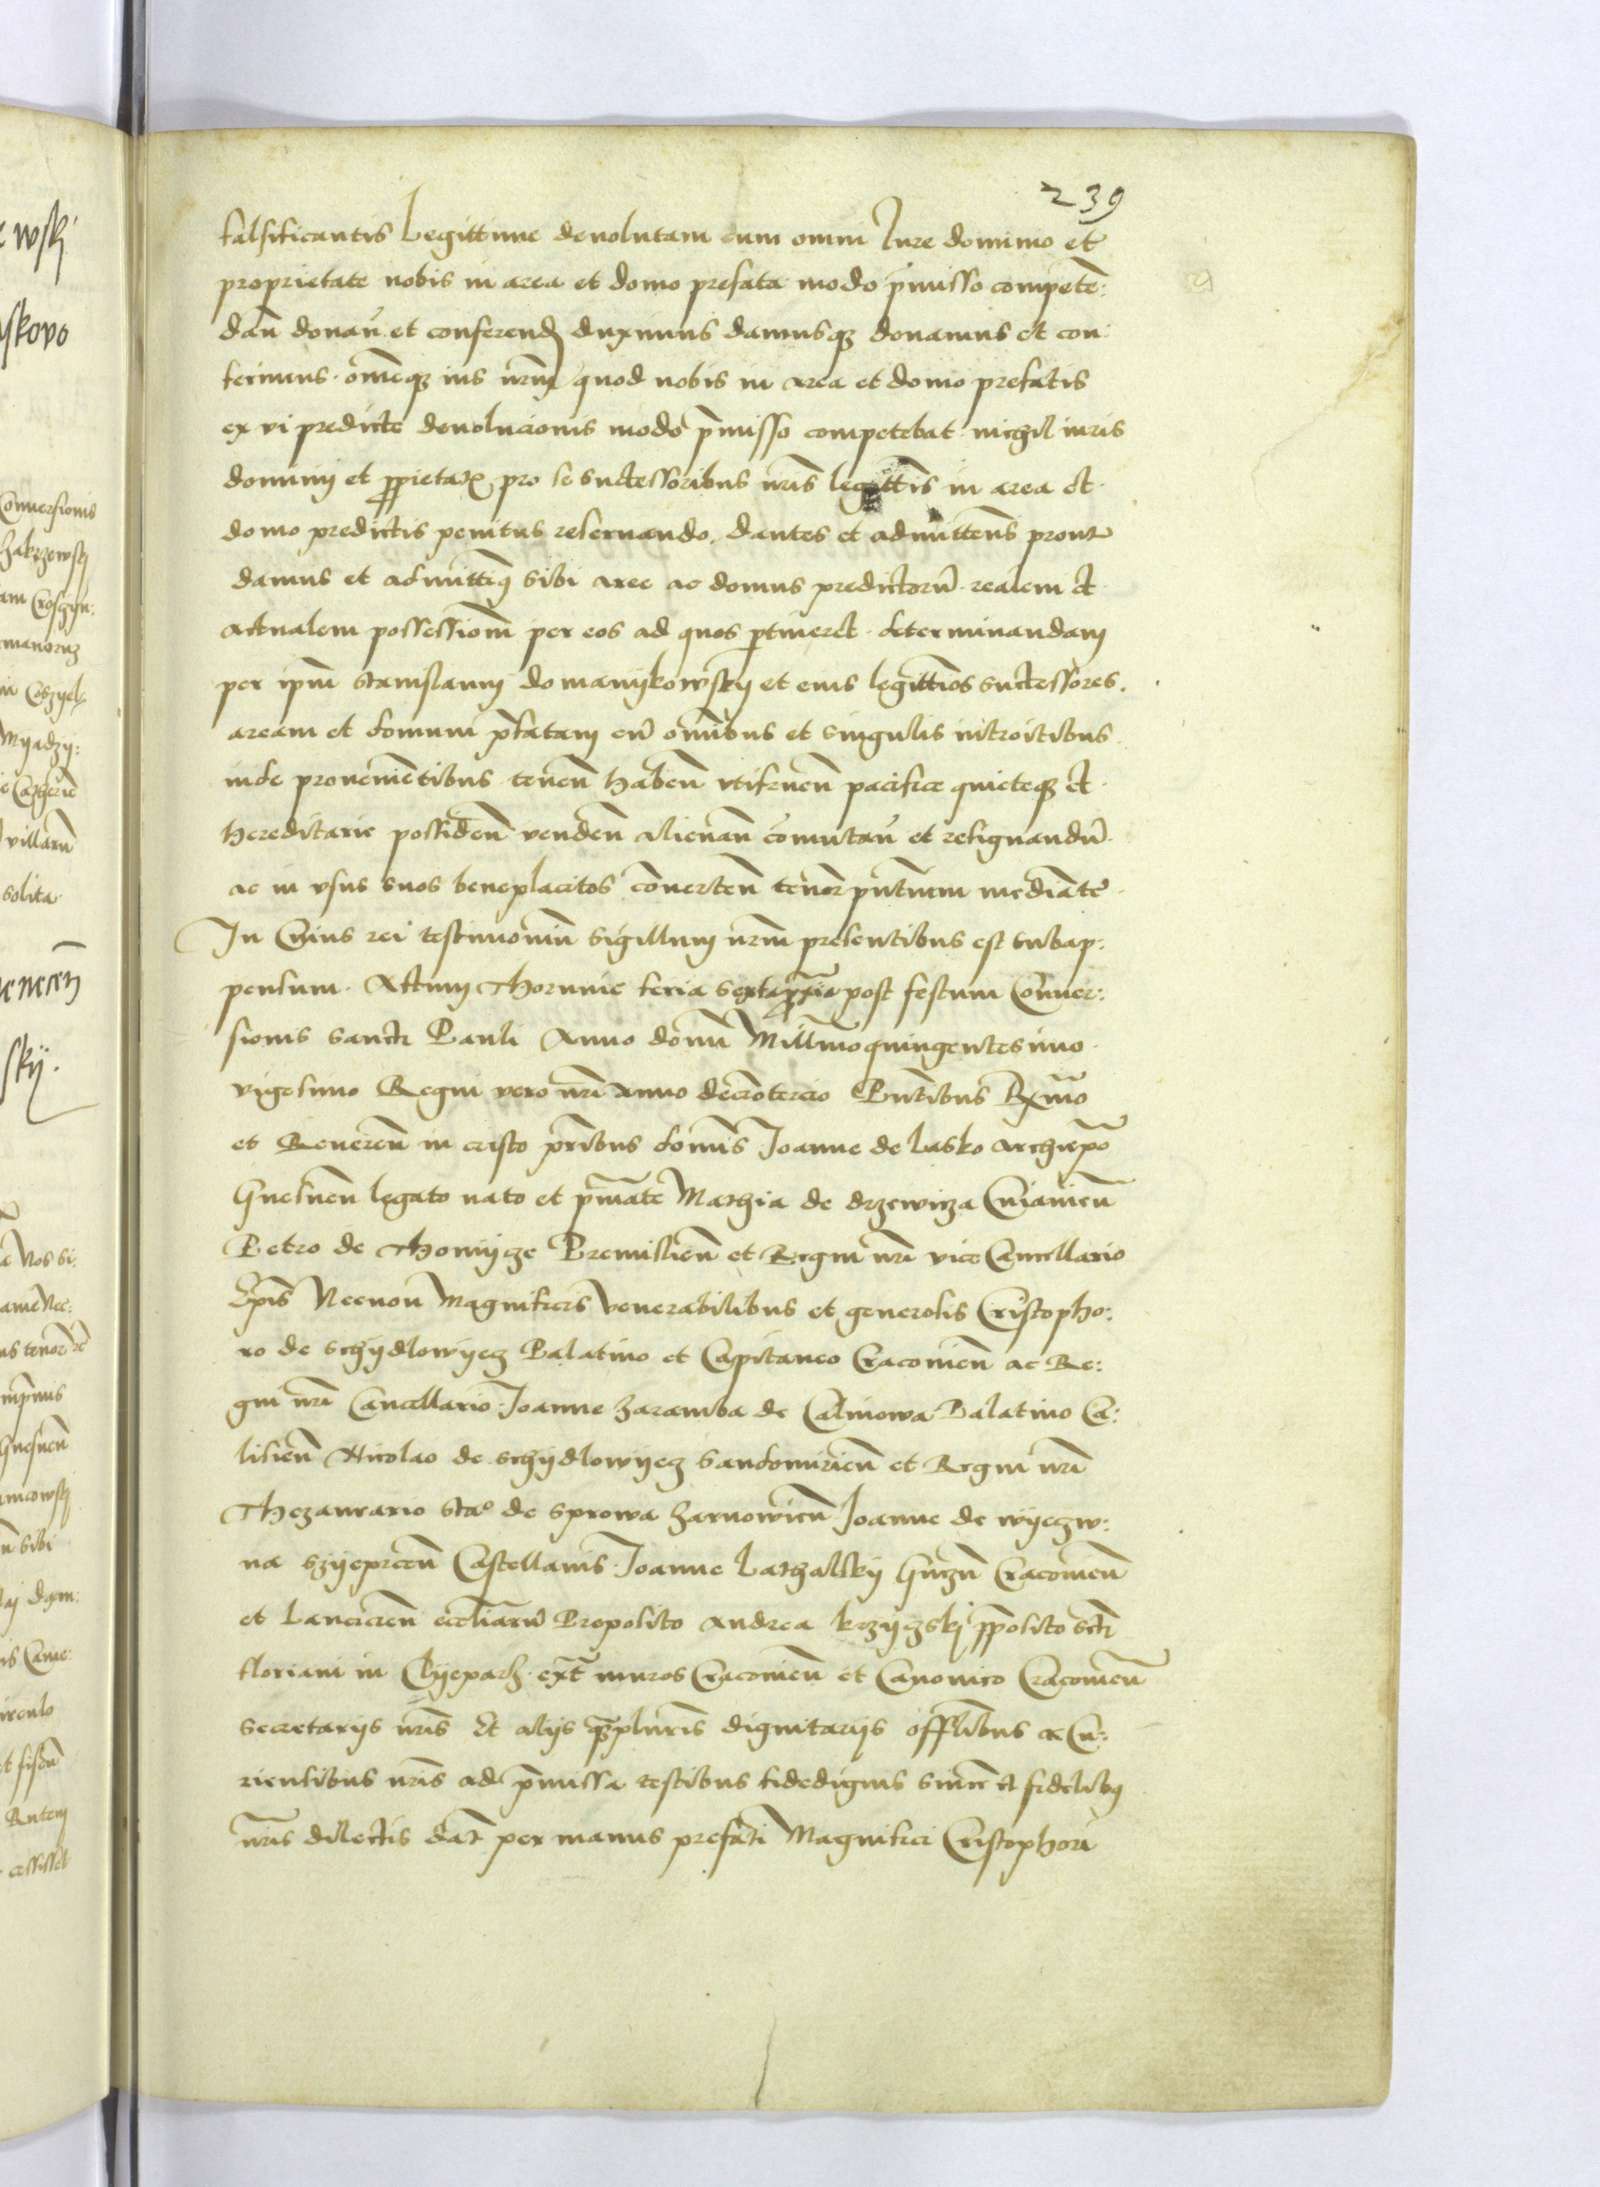 239
falsificantis Legittime devolutam cum omni Iure dominio et
proprietate nobis in area et domo prefata modo p̄misso competē:
dan̄ donan̄ et conferend duximus damusqȝ donamus et con:
ferimus. om̄eqȝ ius nr̄m quod nobis in area et domo prefatis
ex vi predicte devolucionis modo p̄misso competebat. nichil iuris
dominij et ꝓprietatꝭ pro se successoribus nr̄is legittīs in area et
domo predictis penitus reservando. dantes et admitten̄s prout
damus et admittimꝰ sibi aree ac domus predictorū realem et
actualem possessionē per eos ad quos ꝑtineret determinandam
per ip̄m Stanislaum domanijkowskij et eius legittīos successores.
aream et domum p̄fatam cū omībus et singulis introitibus
inde provenietībus tenen̄ haben̄ utifruen̄ pacifice quieteqȝ et
hereditarie possiden̄ venden̄ alienan̄ com̄utan̄ et resignandū
ac in usus suos beneplacitos cōverten̄ tenōr pn̄tium mediāte
In Cuius rei testimoniū sigillum nr̄m presentibus est subap:
pensum. Actum Thorunie feria sexta ꝓxīa post festum Conver:
sionis sancti Pauli Anno domī Mill̄imoquingentesimo
vigesimo Regni vero nr̄i Anno decīotercio Pn̄tibus Rx̄mo
et Reveren̄ in cristo pr̄ibus domīs Joanne de Lasko Archiep̄o
Gnesnen̄ legato nato et p̄mate Mathia de drzewicza Cuiavien̄
Petro de Thomijcze Premislien̄ et Regni nr̄i vice Cancellario
Ep̄is Necnon Magnificis Venerabilibus et generosis Cristopho:
ro de Schijdlowijecz Palatino et Capitaneo Cracovien̄ ac Re:
gni nr̄i Cancellario Joanne Zaramba de Calinowa Palatino Ca:
lisien̄ Nicolao de Schijdlowijecz Sandomirien̄ et Regni nr̄i
Thezaurario Sta⁰ de Sprowa Zarnowien̄ Joanne de wijeczw:
na Szijeprcen̄ Castellanis. Joanne Lathalskij Gnezn̄ Cracovien̄
et Lancicien̄ eccl̄iarū Preposito Andrea krzijczskj p̄posito sctī
floriani in Clijeparz ext̄ muros Cracovien̄ et Canonico Cracovien̄
Secretarijs nr̄is Et alijs qꝫpluris̄ dignitarijs offl̄ibus ac Cu:
riensibus nr̄is ad p̄missa testibus fidedignis sincere et fidelibꝰ
nr̄is dilectis dat̄ per manus prefati Magnifici Cristophori